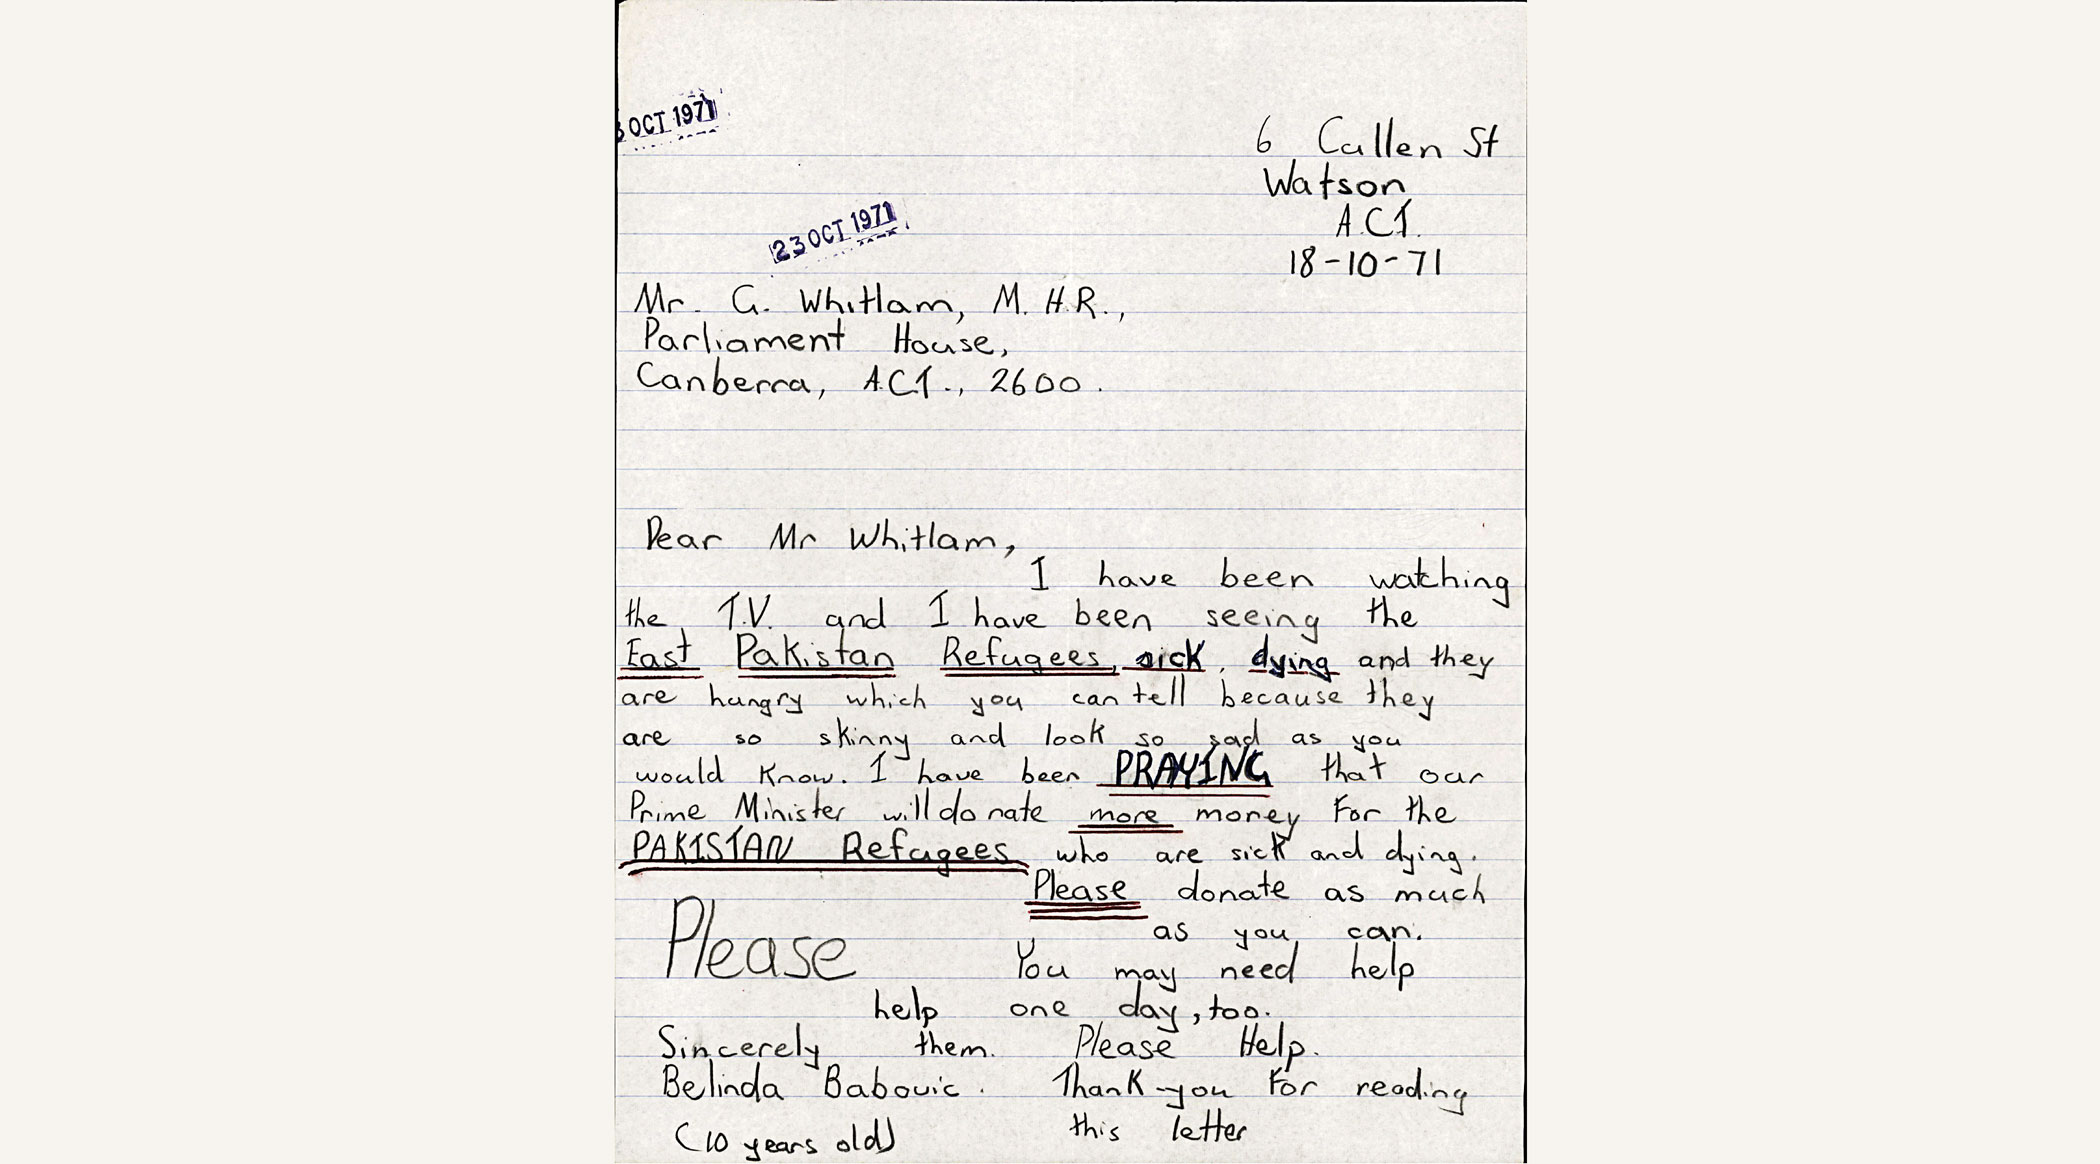 OCT 1971
6 Cullen St
Watson
A.C.T.
18-10-71
23 OCT 1971
Mr. G. Whitlam, M.H.R.,
Parliament House,
Canberra, A.C.T., 2600.
Dear Mr Whitlam,
I have been watching
the T.V. and I have been seeing the
East Pakistan Refugees, sick, dying and they
are hungry which you can tell because they
are so skinny and look so sad as you
would know. I have been PRAYING that our
Prime Minister will donate more money for the
PAKISTAN Refugees who are sick and dying.
Please donate as much
as you can.
Please You may need help
help one day, too.
Sincerely them. Please Help.
Belinda Babovic. Thank-you for reading
(10 years old) this letter